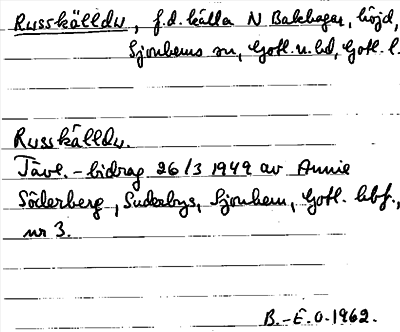 Russkälldu, f.d. källa N Bakhagar, höjd,
Sjonhems sn, Gotl. n. hd, Gotl. l.
Russkälldu.
Tävl.-bidrag 26/3 1949 av Annie
Söderberg, Suderbys, Sjonhem, Gotl. hbf.,
nr 3.
B.-E.O. 1962.